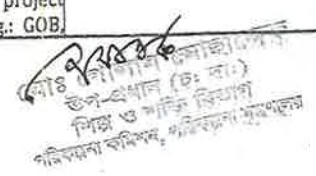 project
g.: GOB
মোঃ গোলাম মোছাদ্দেক
উপ-প্রধান (চঃ দাঃ)
শিল্প ও শক্তি বিভাগ
পরিকল্পনা কমিশন, পরিকল্পনা মন্ত্রণালয়